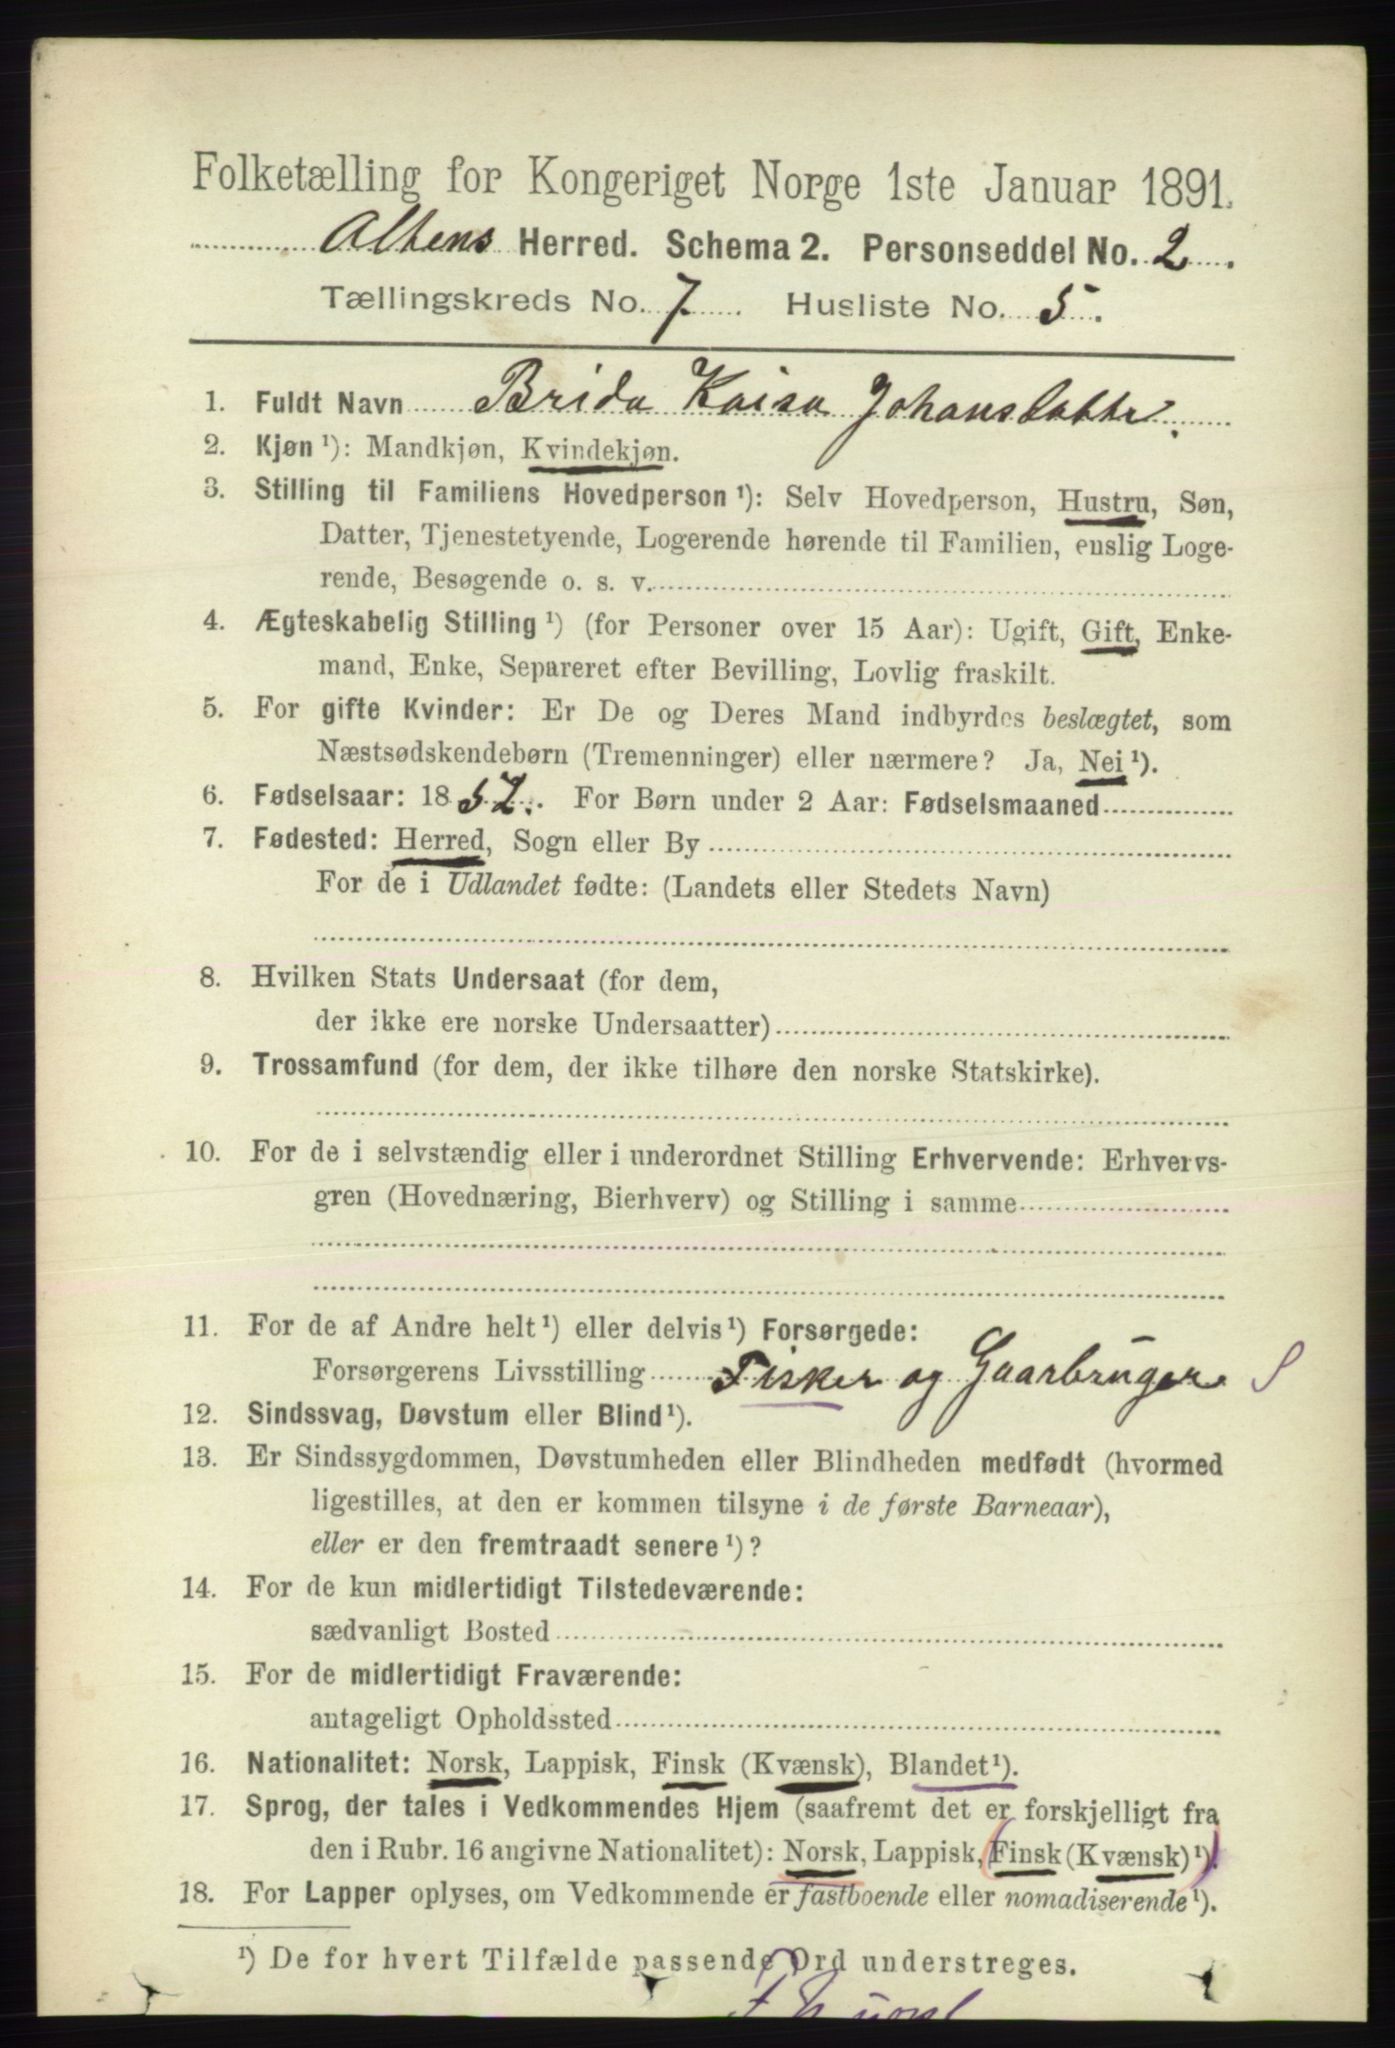 Folketælling for Kongeriget Norge 1ste Januar 1891.
Altens Herred. Schema 2. Personseddel No. 2.
Tællingskreds No. 7. Husliste No. 5.
1. Fuldt Navn Brida Kaisa Johansdatter.
2. Kjøn ¹): Mandkjøn, Kvindekjøn.
3. Stilling til Familiens Hovedperson ¹): Selv Hovedperson, Hustru, Søn,
Datter, Tjenestetyende, Logerende hørende til Familien, enslig Loge-
rende, Besøgende o. s. v.
4. Ægteskabelig Stilling ¹) (for Personer over 15 Aar): Ugift, Gift, Enke-
mand, Enke, Separeret efter Bevilling, Lovlig fraskilt.
5. For gifte Kvinder: Er De og Deres Mand indbyrdes beslægtet, som
Næstsødskendebørn (Tremenninger) eller nærmere? Ja, Nei ¹).
6. Fødselsaar: 1852. For Børn under 2 Aar: Fødselsmaaned
7. Fødested: Herred, Sogn eller By
For de i Udlandet fødte: (Landets eller Stedets Navn)
8. Hvilken Stats Undersaat (for dem,
der ikke ere norske Undersaatter)
9. Trossamfund (for dem, der ikke tilhøre den norske Statskirke).
10. For de i selvstændig eller i underordnet Stilling Erhvervende: Erhvervs-
gren (Hovednæring, Bierhverv) og Stilling i samme
11. For de af Andre helt ¹) eller delvis ¹) Forsørgede:
Forsørgerens Livsstilling Fisker og Gaarbruger
12. Sindssvag, Døvstum eller Blind ¹).
13. Er Sindssygdommen, Døvstumheden eller Blindheden medfødt (hvormed
ligestilles, at den er kommen tilsyne i de første Barneaar),
eller er den fremtraadt senere ¹)?
14. For de kun midlertidigt Tilstedeværende:
sædvanligt Bosted
15. For de midlertidigt Fraværende:
antageligt Opholdssted
16. Nationalitet: Norsk, Lappisk, Finsk (Kvænsk), Blandet ¹).
17. Sprog, der tales i Vedkommendes Hjem (saafremt det er forskjelligt fra
den i Rubr. 16 angivne Nationalitet): Norsk, Lappisk, Finsk (Kvænsk) ¹).
18. For Lapper oplyses, om Vedkommende er fastboende eller nomadiserende ¹).
¹) De for hvert Tilfælde passende Ord understreges.